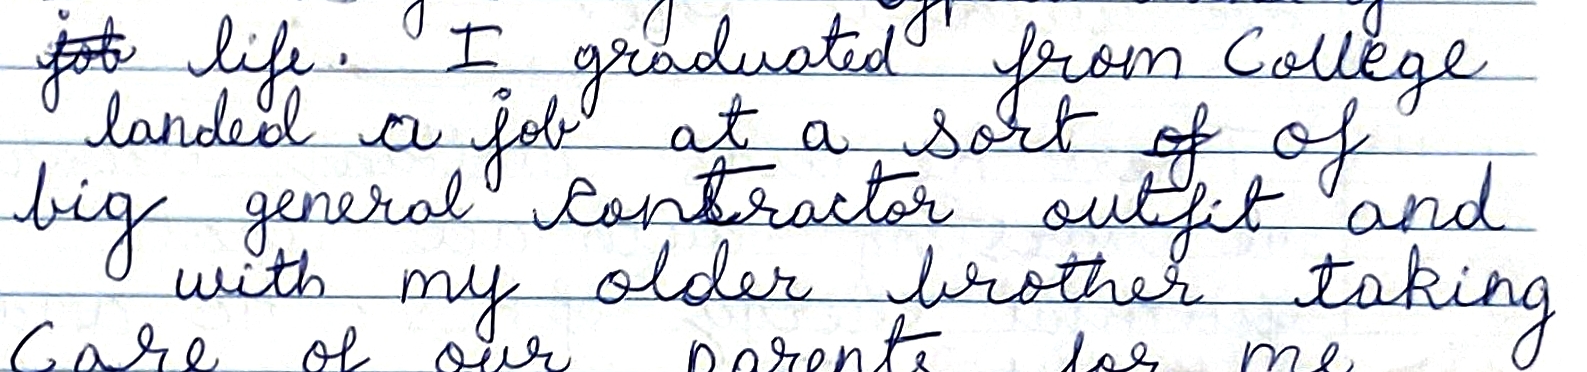 job life. I graduated from College
landed a job at a sort of of
big general contractor outfit and
with my older brother taking
Care of our parents for me